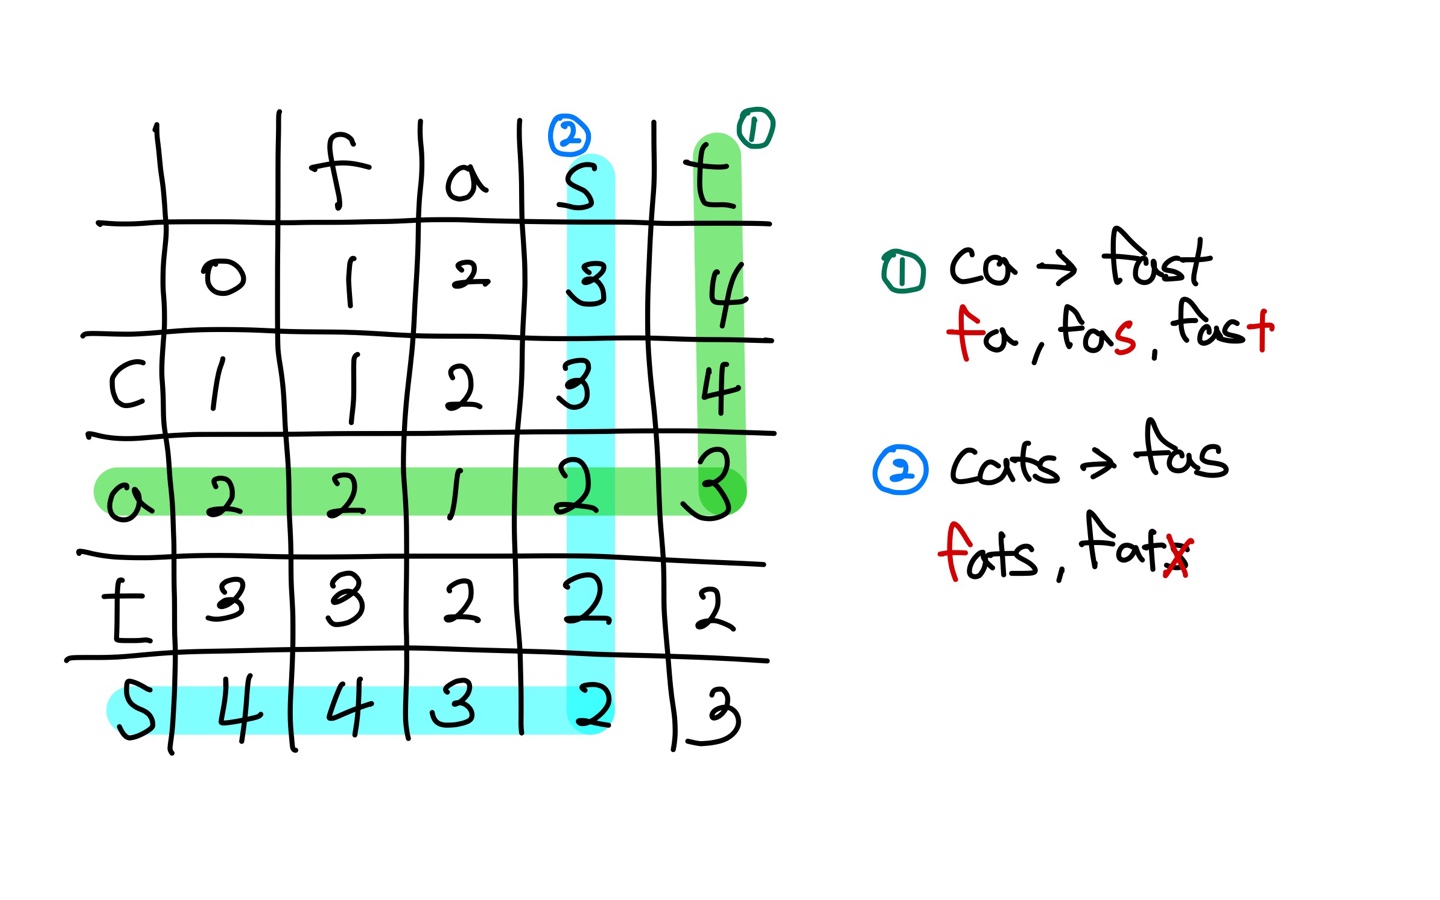 ② ①
f a s t
0 1 2 3 4
c 1 1 2 3 4
a 2 2 1 2 3
t 3 3 2 2 2
s 4 4 3 2 3
① ca → fast
fa, fas, fast
② cats → fas
fats, fats